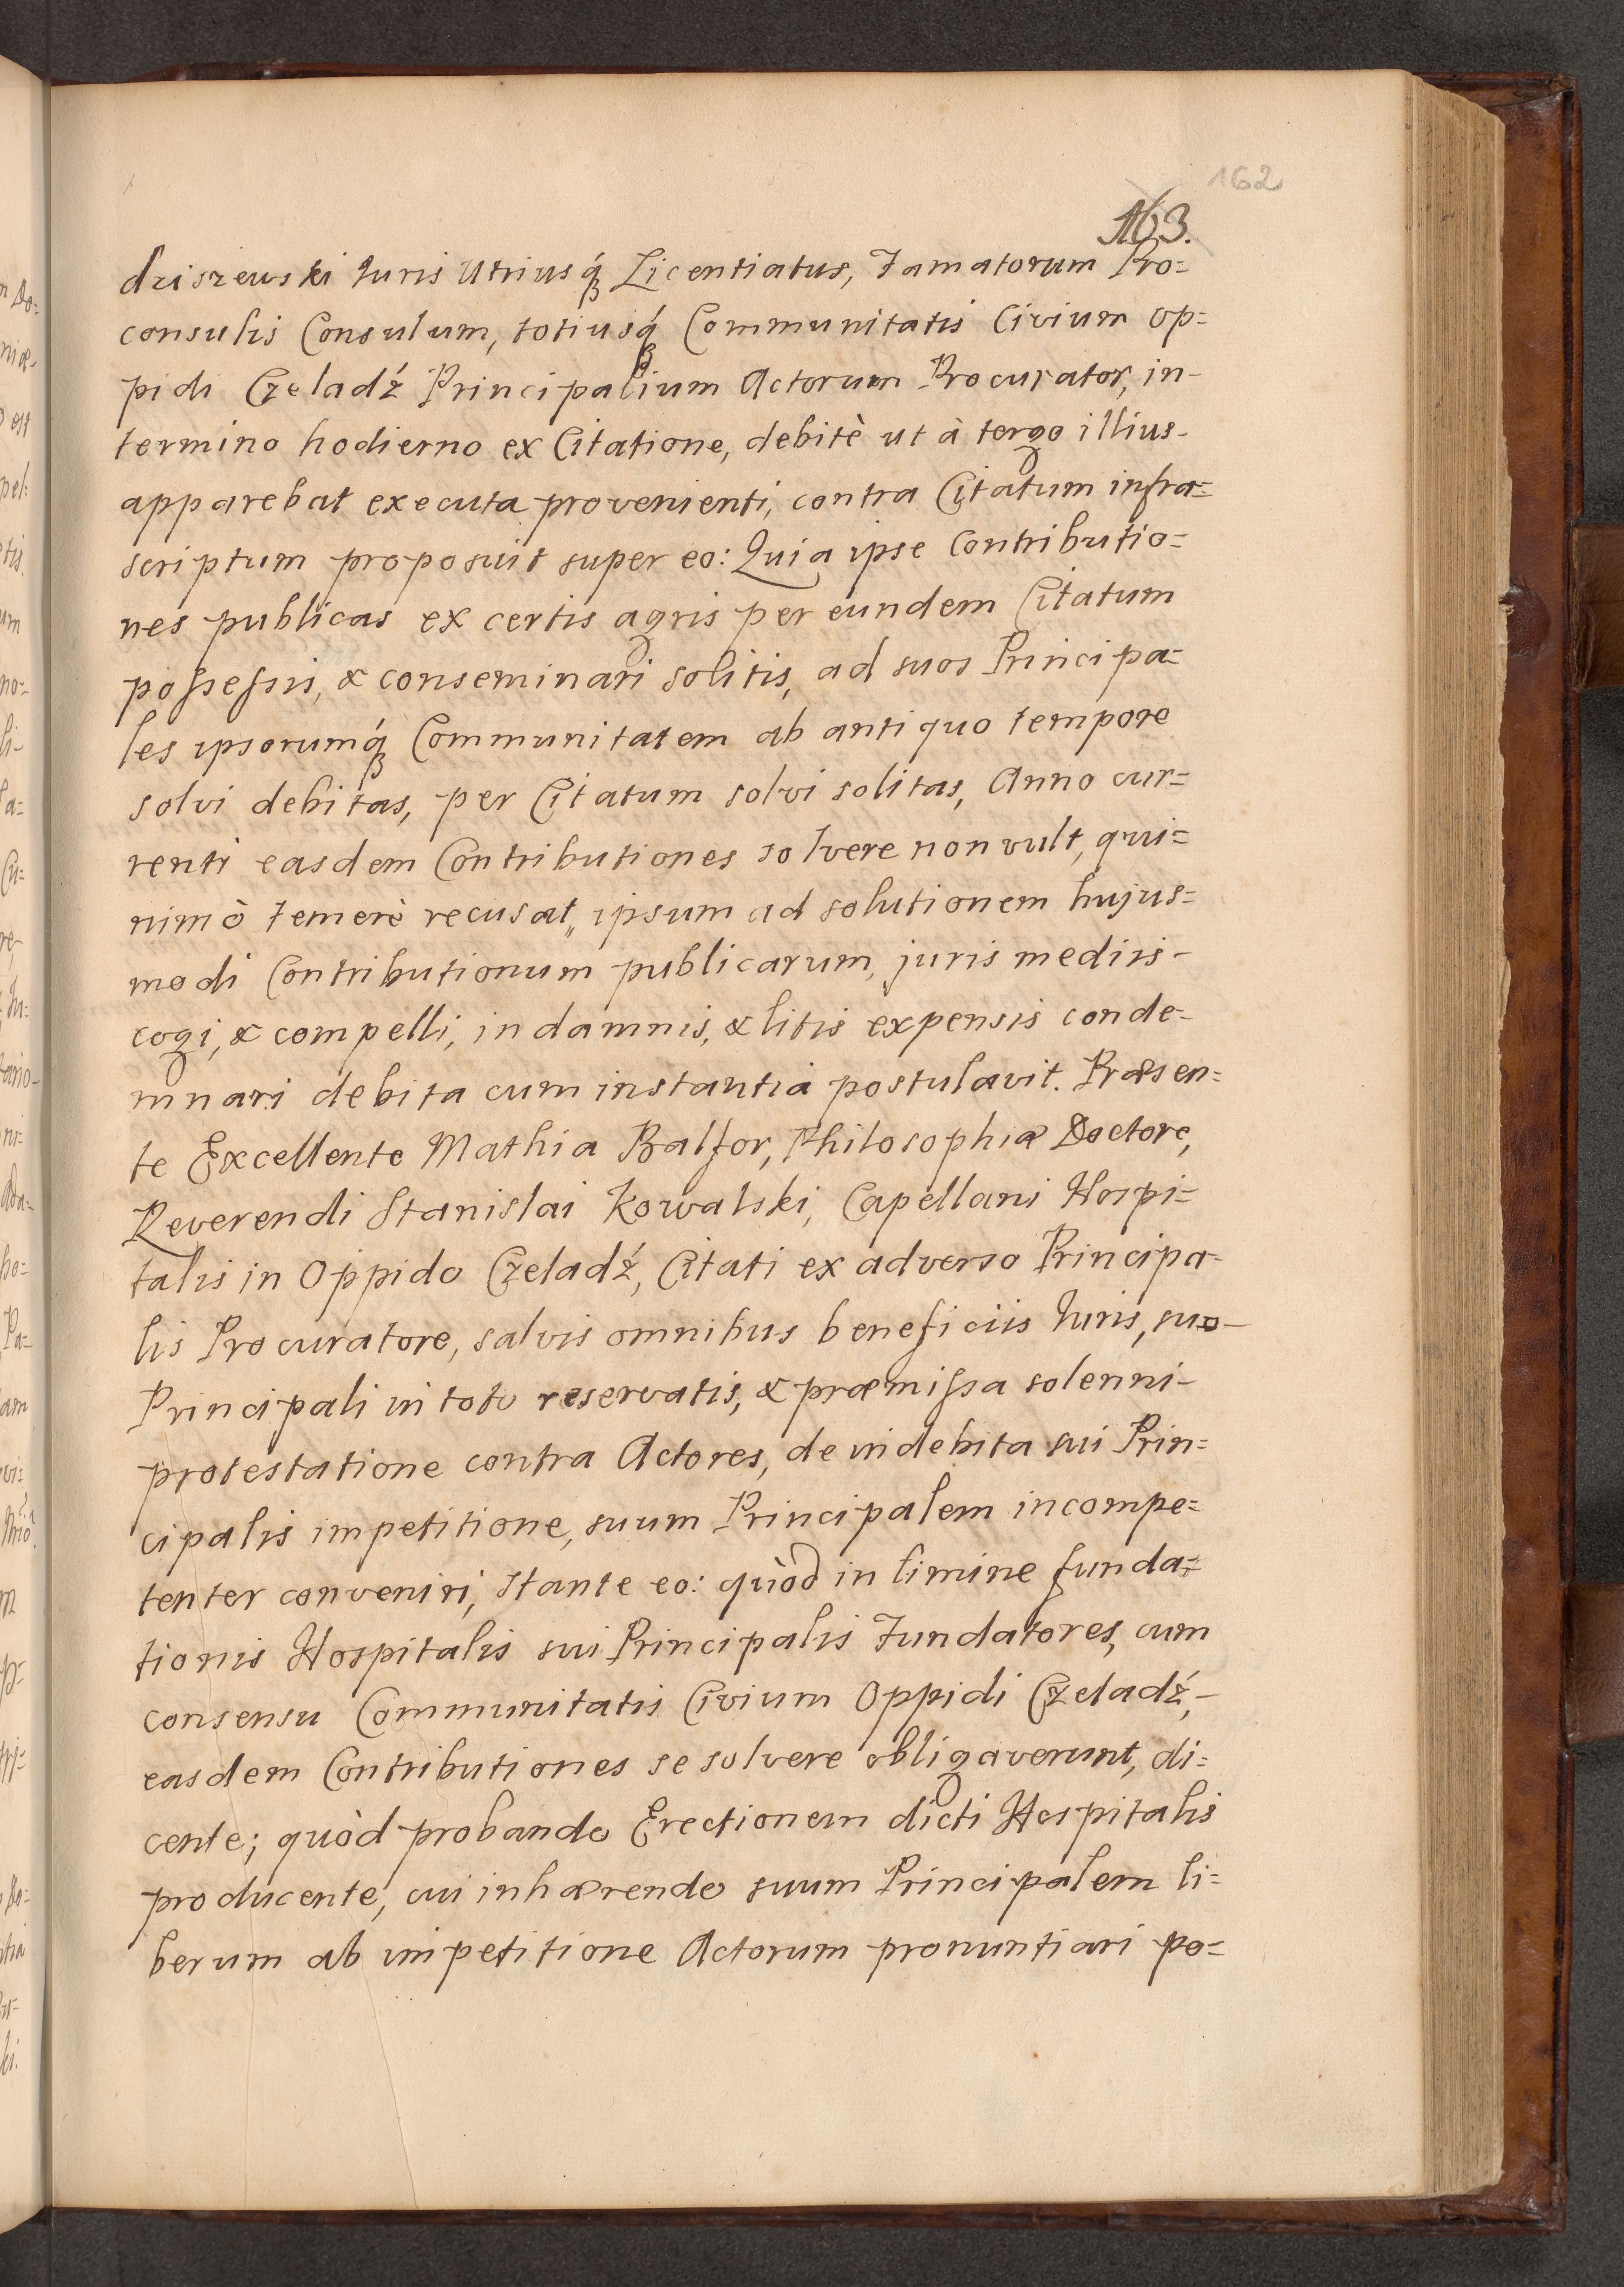 162
163.
dziszewski Iuris Utriusq́ꝫ Licentiatus, Famatorum Pro=
consulis Consulum, totiusq́ꝫ Communitatis Civium op=
pidi Czeladź Principalium Actorum Procurator, in-
termino hodierno ex Citatione, debitè ut à tergo illius-
apparebat executa provenienti, contra Citatum infra=
scriptum proposuit super eo: Quia ipse Contributio=
nes publicas ex certis agris per eundem Citatum
possessis, & conseminari solitis, ad suos Principa=
les ipsorumq́ꝫ Communitatem ab antiquo tempore
solvi debitas, per Citatum solvi solitas, Anno cur=
renti easdem Contributiones solvere non vult, qui=
nimò temerè recusat, ipsum ad solutionem hujus=
modi Contributionum publicarum, juris mediis-
cogi, & compelli, in damnis, & litis expensis conde-
mnari debita cum instantia postulavit. Præsen=
te Excellente Mathia Balfor, Philosophiæ Doctore,
Reverendi Stanislai Kowalski, Capellani Hospi=
talis in Oppido Czeladź, Citati ex adverso Principa-
lis Procuratore, salvis omnibus beneficiis Iuris, suo-
Principali in toto reservatis, & præmissa solenni-
protestatione contra Actores, de indebita sui Prin=
cipalis impetitione, suum Principalem incompe=
tenter conveniri, stante eo: quòd in limine funda=
tionis Hospitalis sui Principalis Fundatores, cum
consensu Communitatis Civium Oppidi Czeladź,-
easdem Contributiones se solvere obligaverunt, di=
cente; quòd probando Erectionem dicti Hospitalis
producente, cui inhærendo suum Principalem li=
berum ab impetitione Actorum pronuntiari po=